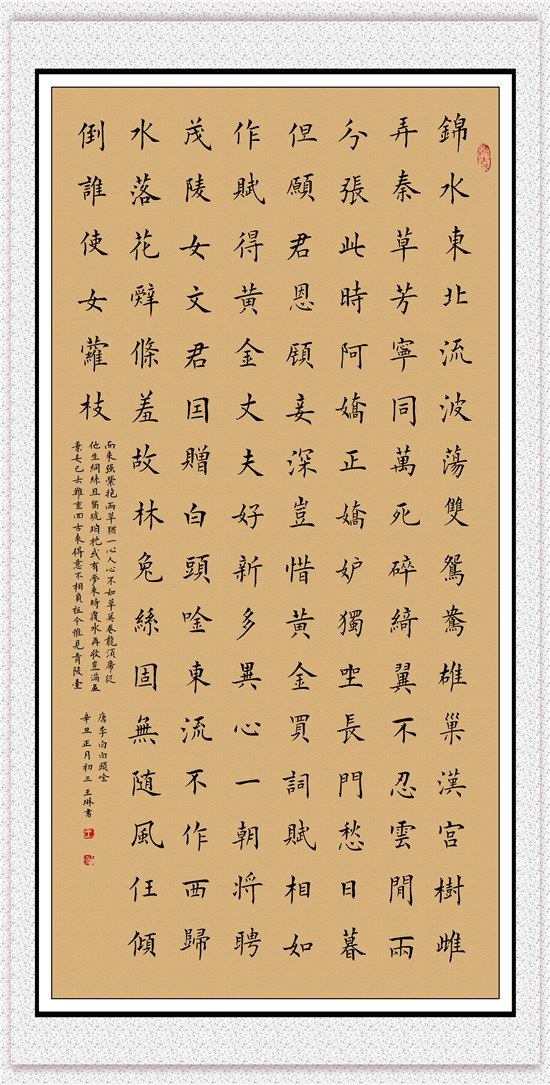 錦水東北流波蕩雙鴛鴦雄巢漢宮樹雌
弄秦草芳寧同萬死碎綺翼不忍雲閒兩
分張此時阿嬌正嬌妒獨坐長門愁日暮
但願君恩顧妾深豈惜黃金買詞賦相如
作賦得黃金丈夫好新多異心一朝將聘
茂陵女文君因贈白頭唫東流不作西歸
水落花辭條羞故林兔絲固無隨風任傾
倒誰使女蘿枝
而來強縈抱兩草猶一心人心不如草莫卷龍須席從
他生網絲且留琥珀枕或有夢來時覆水再收豈滿盃
棄妾已去難重回古來得意不相負祗今惟見青陵臺
唐李白白頭唫
辛丑正月初三王琳書